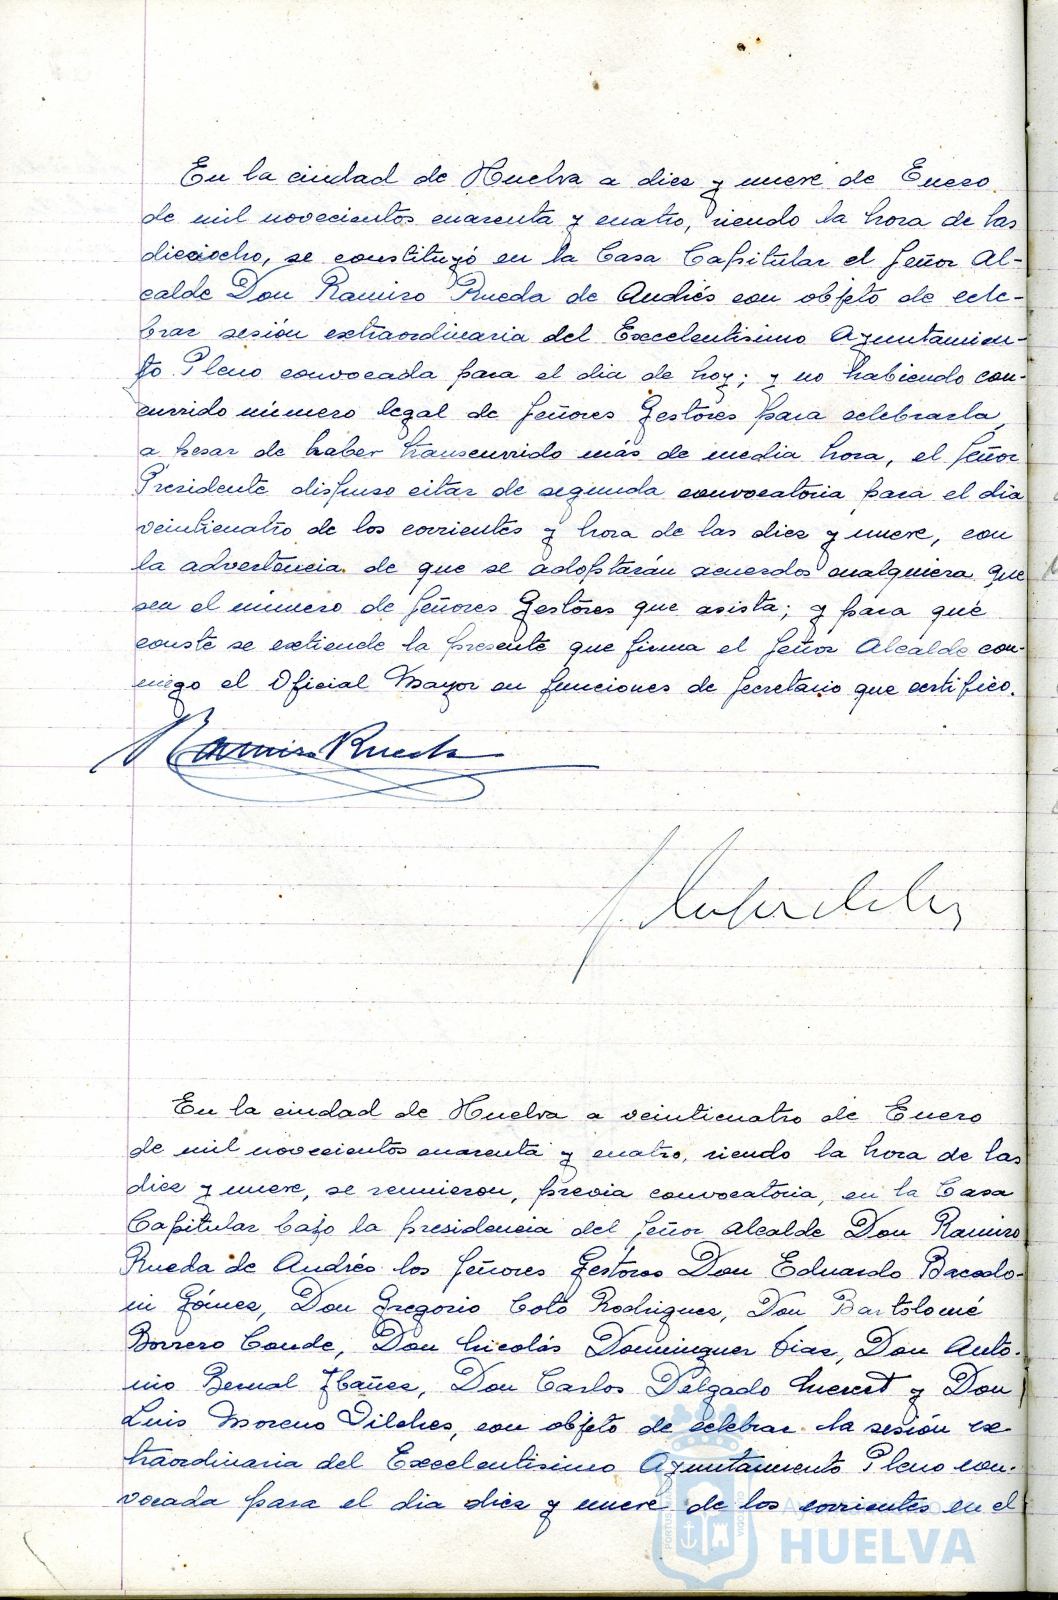 En la ciudad de Huelva a diez y nueve de Enero
de mil novecientos cuarenta y cuatro, siendo la hora de las
dieciocho, se constituyó en la Casa Capitular el Señor Al-
calde Don Ramiro Rueda de Andrés con objeto de cele-
brar sesión extraordinaria del Excelentisimo Ayuntamien-
to Pleno convocada para el dia de hoy; y no habiendo con-
currido número legal de Señores Gestores para celebrarla,
a pesar de haber transcurrido más de media hora, el Señor
Presidente dispuso citar de segunda convocatoria para el dia
veinticuatro de los corrientes y hora de las diez y nueve, con
la advertencia de que se adoptarán acuerdos cualquiera que
sea el número de Señores Gestores que asista; y para que
conste se extiende la presente que firma el Señor Alcalde con-
migo el Oficial Mayor en funciones de Secretario que certifico.
Ramiro Rueda
En la ciudad de Huelva a veinticuatro de Enero
de mil novecientos cuarenta y cuatro, siendo la hora de las
diez y nueve, se reunieron, previa convocatoria, en la Casa
Capitular bajo la presidencia del Señor Alcalde Don Ramiro
Rueda de Andrés los Señores Gestores Don Eduardo Bacedo-
ni Gómez, Don Gregorio Coto Rodriguez, Don Bartolomé
Borrero Conde, Don Nicolás Dominguez Diaz, Don Anto-
nio Bernal Ibañez, Don Carlos Delgado y Don
Luis Moreno Pilches, con objeto de celebrar la sesión ex-
traordinaria del Excelentisimo Ayuntamiento Pleno con-
vocada para el dia diez y nueve de los corrientes en el
Ayuntamiento
HUELVA